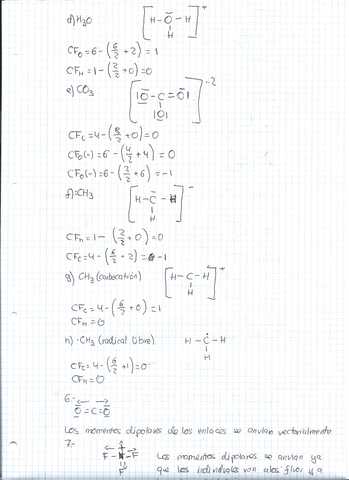 d) H₂O [H-O-H]⁺
H
CF₀ = 6 - (6/2 + 2) = 1
CF_H = 1 - (2/2 + 0) = 0
e) CO₃ [|O-C=O|]⁻²
|O|
CF_C = 4 - (8/2 + 0) = 0
CF₀(=) = 6 - (4/2 + 4) = 0
CF₀(-) = 6 - (2/2 + 6) = -1
f) :CH₃ [H-C-H]⁻
H
CF_H = 1 - (2/2 + 0) = 0
CF_C = 4 - (6/2 + 2) = -1
g) CH₃ (carbocatión) [H-C-H]⁺
H
CF_C = 4 - (6/2 + 0) = 1
CF_H = 0
h) ·CH₃ (radical libre) H-Ċ-H
H
CF_C = 4 - (6/2 + 1) = 0
CF_H = 0
6.-
O=C=O
Los momentos dipolares de los enlaces se anulan vectorialmente.
7.-
F
F Los momentos dipolares se anulan ya
F que los individuales van a los fluor y a